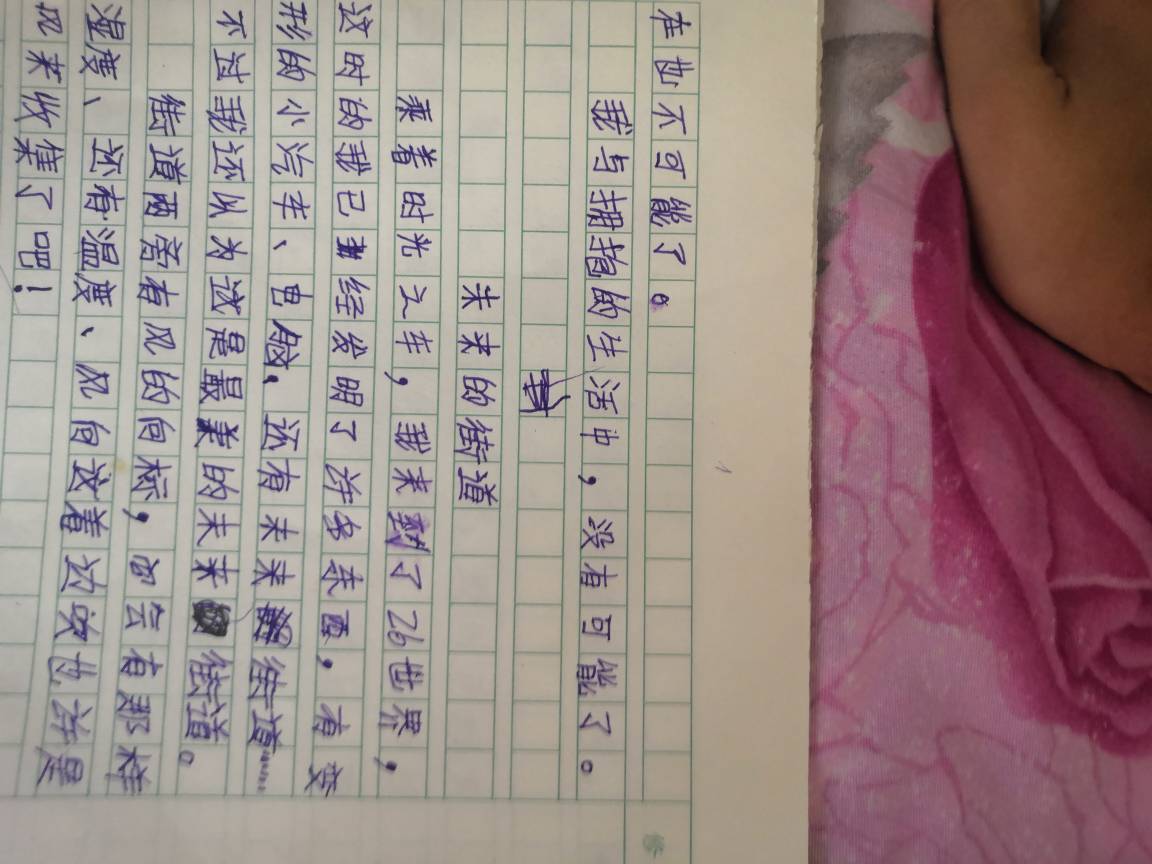 在也不可能了。
我与拥抱的生活中，没有可能了。
未来的街道
乘着时光之车，我来到了26世界，
这时的我已经发明了许多东西，有变
形的小汽车、电船，还有未来街道……
不过我还以为这是最美的未来街道。
街道两旁有风的向标，会有那样
湿度、还有温度、风向这着边吹也许是
风来收集了吧！